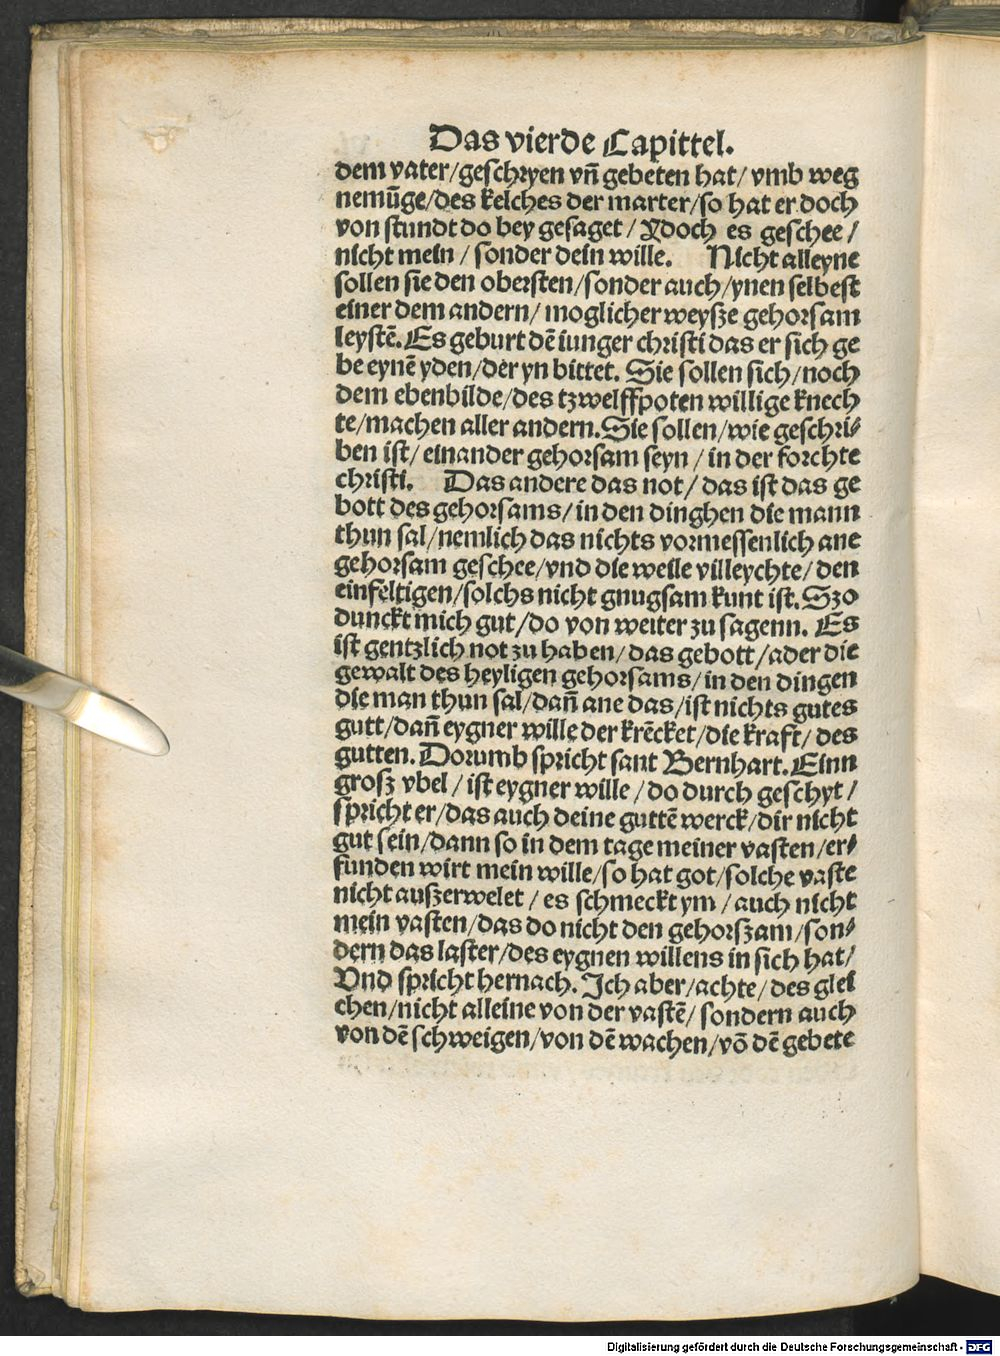 Das vierde Capittel.
dem vater/geschryen vn̄ gebeten hat/ vmb weg
nemūge/des kelches der marter/so hat er doch
von stundt do bey gesaget / Ydoch es geschee /
nicht mein / sonder dein wille. Nicht alleyne
sollen sie den obersten/sonder auch/ynen selbest
einer dem andern/ moglicher weysze gehorsam
leystē. Es geburt dē iunger christi das er sich ge
be eynē yden/der yn bittet. Sie sollen sich/noch
dem ebenbilde/des tzwelffpoten willige knech
te/machen aller andern. Sie sollen/wie geschri⸗
ben ist/ einander gehorsam seyn / in der forchte
christi. Das andere das not/ das ist das ge
bott des gehorsams/ in den dinghen die mann
thun sal/nemlich das nichts vormessenlich ane
gehorsam geschee/vnd die weile villeychte/ den
einfeltigen/solchs nicht gnugsam kunt ist. Szo
dunckt mich gut/do von weiter zu sagenn. Es
ist gentzlich not zu haben/ das gebott/ader die
gewalt des heyligen gehorsams/ in den dingen
die man thun sal/dan̄ ane das/ist nichts gutes
gutt/dan̄ eygner wille der krēcket/die kraft/ des
gutten. Dorumb spricht sant Bernhart. Einn
grosz vbel / ist eygner wille / do durch geschyt /
spricht er/das auch deine guttē werck/dir nicht
gut sein/dann so in dem tage meiner vasten/er⸗
funden wirt mein wille/so hat got/solche vaste
nicht auszerwelet / es schmeckt ym / auch nicht
mein vasten/das do nicht den gehorszam/son⸗
dern das laster/des eygnen willens in sich hat/
Vnd spricht hernach. Ich aber/achte/ des glei
chen/nicht alleine von der vastē/ sondern auch
von dē schweigen/von dē wachen/vō dē gebete
Digitalisierung gefördert durch die Deutsche Forschungsgemeinschaft - DFG